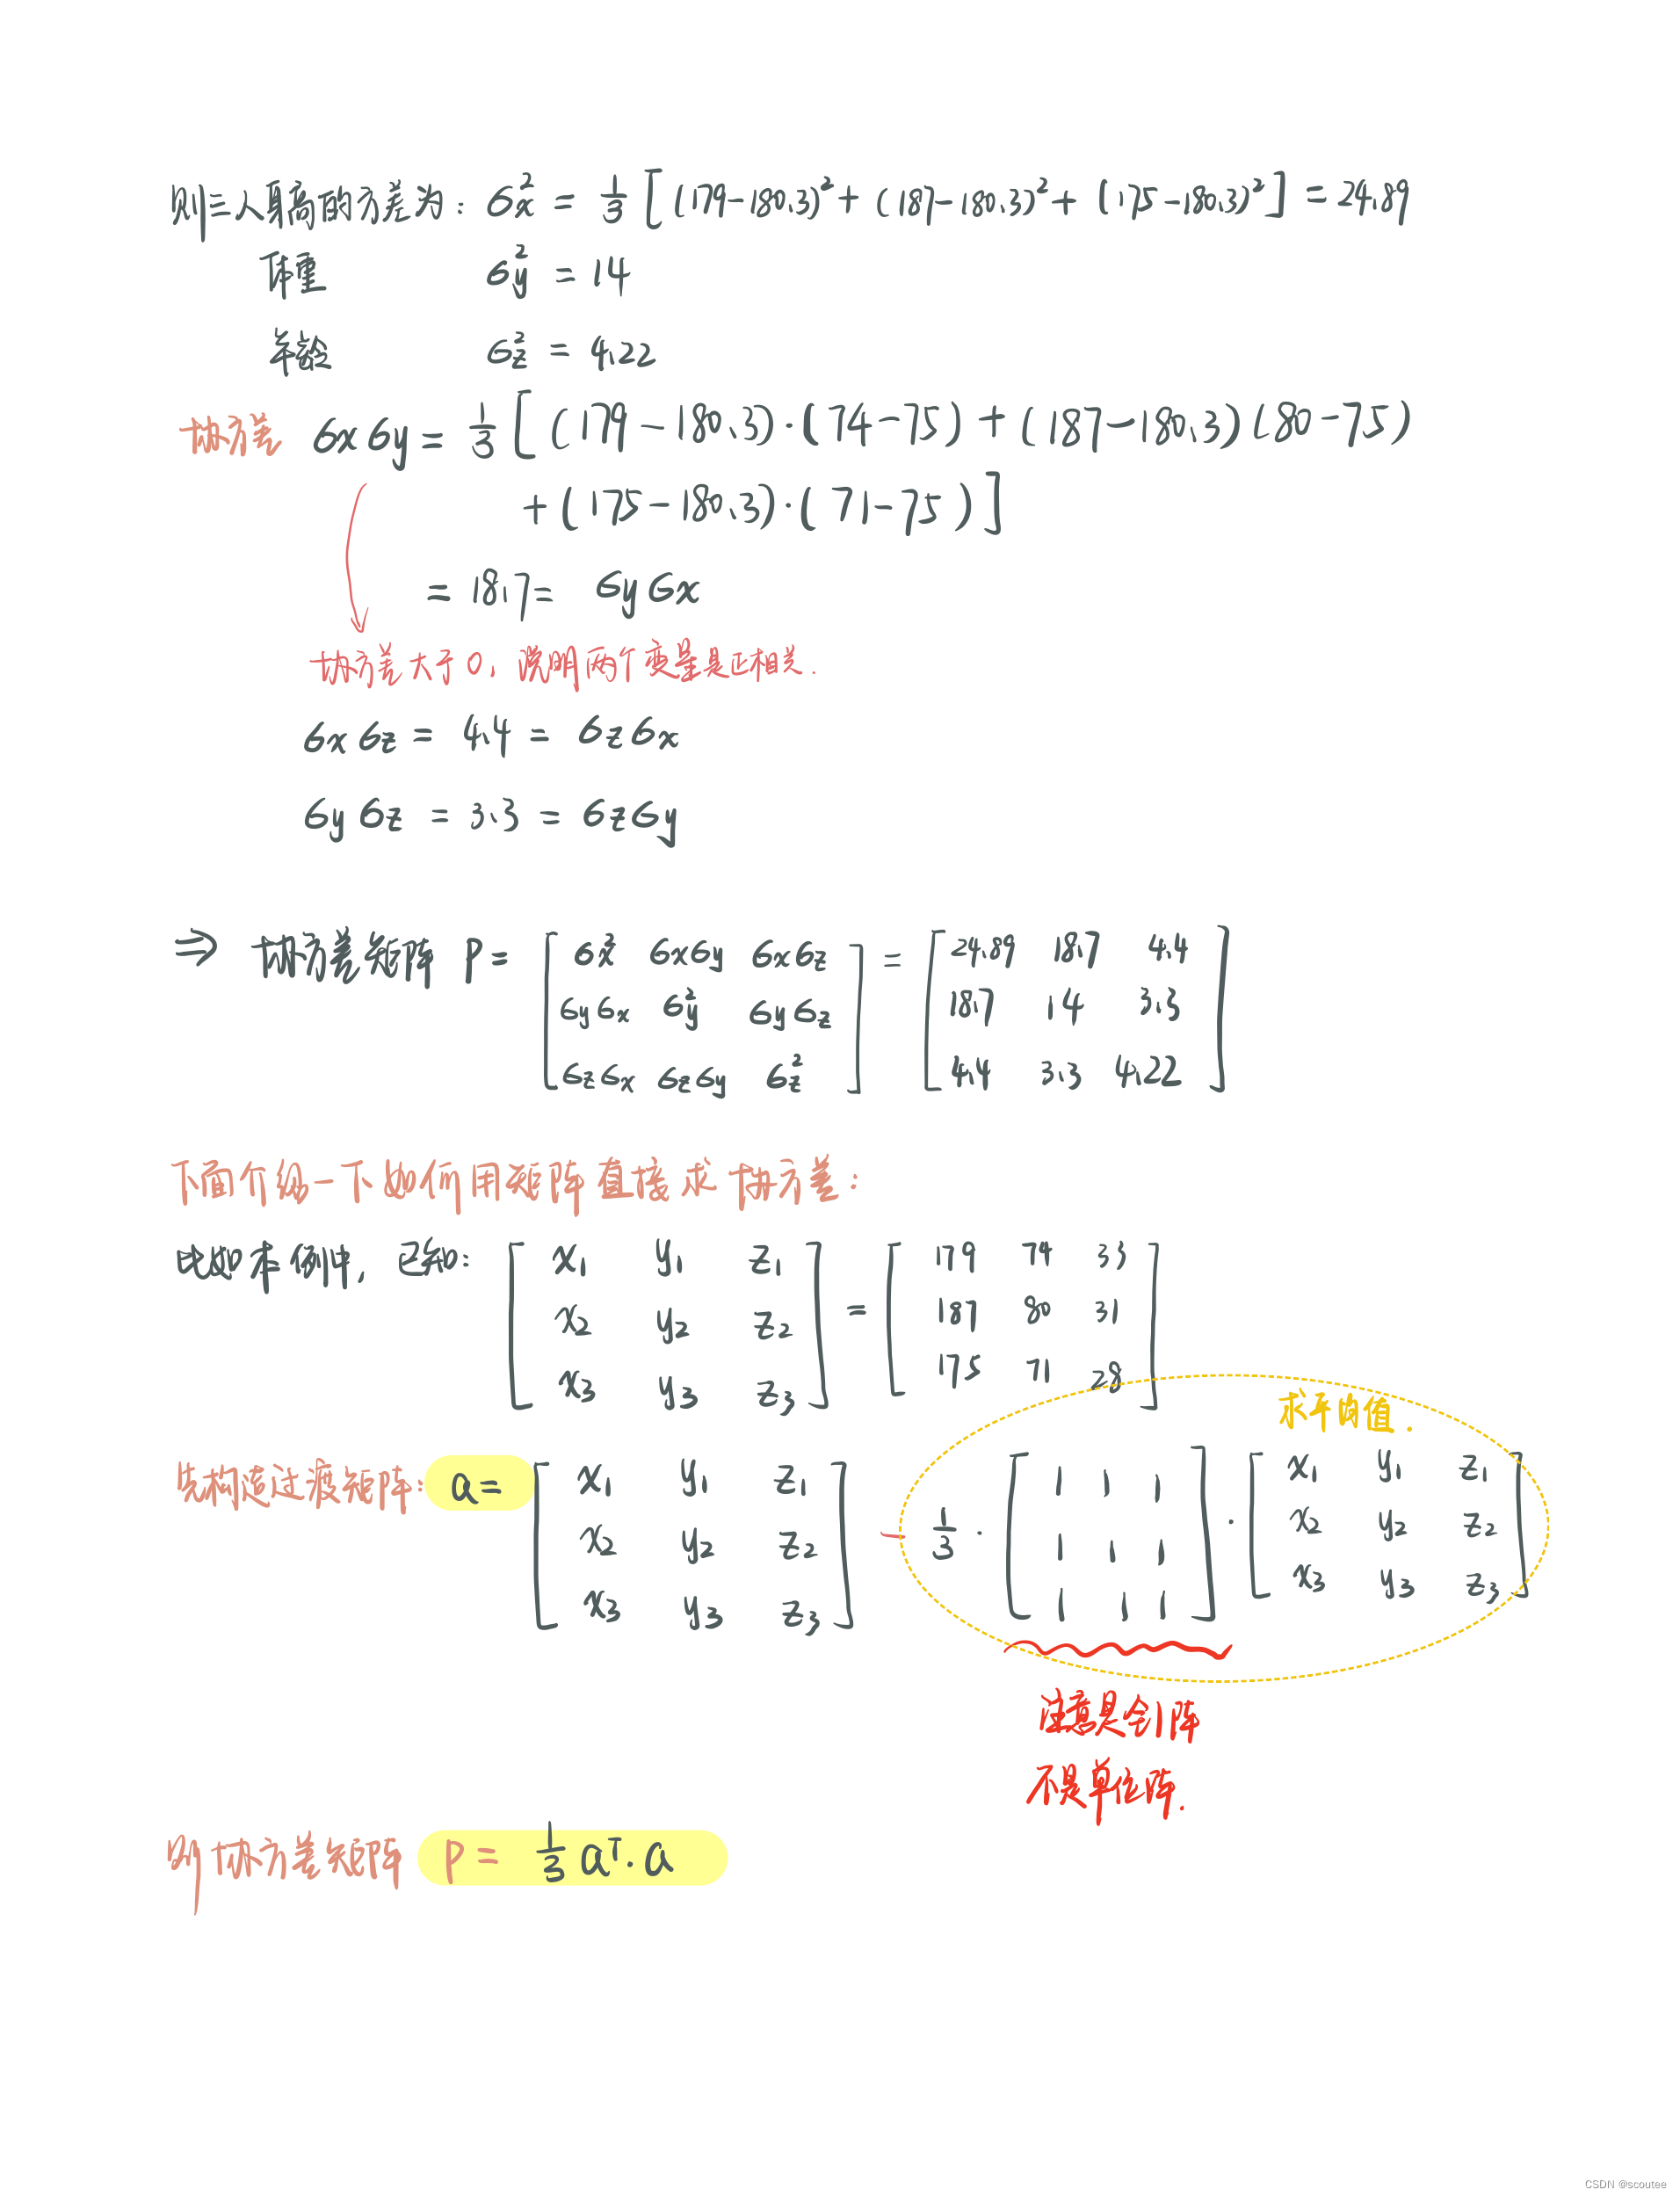 则三人身高的方差为: σx² = 1/3 [(179-180.3)²+ (187-180.3)²+ (175-180.3)²] = 24.89
体重 σy² = 14
年龄 σz² = 4.22
协方差 σxσy = 1/3 [(179-180.3)·(74-75) + (187-180.3)(80-75)
+(175-180.3)·(71-75)]
= 18.7 = σyσx
协方差大于0, 说明两个变量是正相关.
σxσz = 4.4 = σzσx
σyσz = 3.3 = σzσy
⇒ 协方差矩阵 P = [σx² σxσy σxσz; σyσx σy² σyσz; σzσx σzσy σz²] = [24.89 18.7 4.4; 18.7 14 3.3; 4.4 3.3 4.22]
下面介绍一下如何用矩阵直接求协方差:
比如本例中, 已知: [x1 y1 z1; x2 y2 z2; x3 y3 z3] = [179 74 33; 187 80 31; 175 71 28]
求平均值.
先构造过渡矩阵: a = [x1 y1 z1; x2 y2 z2; x3 y3 z3] - 1/3 · [1 1 1; 1 1 1; 1 1 1] · [x1 y1 z1; x2 y2 z2; x3 y3 z3]
注意是全1阵
不是单位阵.
则协方差矩阵 P = 1/3 aᵀ·a
CSDN @scoutee